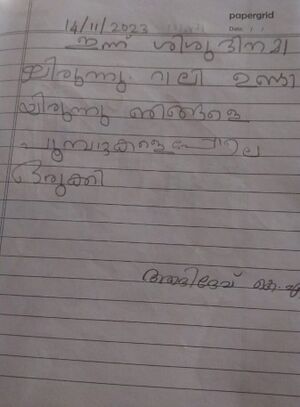 papergrid
Date: / /
14/11/2023
ഇന്ന് ശിശുദിനമാ
യിരുന്നു. റാലി ഉണ്ടാ
യിരുന്നു ഞങ്ങളെ
പൂമ്പാറ്റകളെപ്പോലെ
ഒരുക്കി